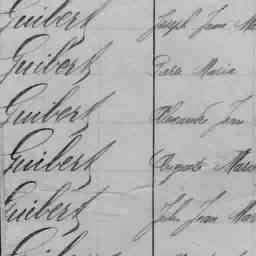 Guibert Joseph Jean Ma
Guibert Pierre Marie
Guibert Alexandre Jean
Guibert Auguste Marie
Guibert Jules Jean Mar